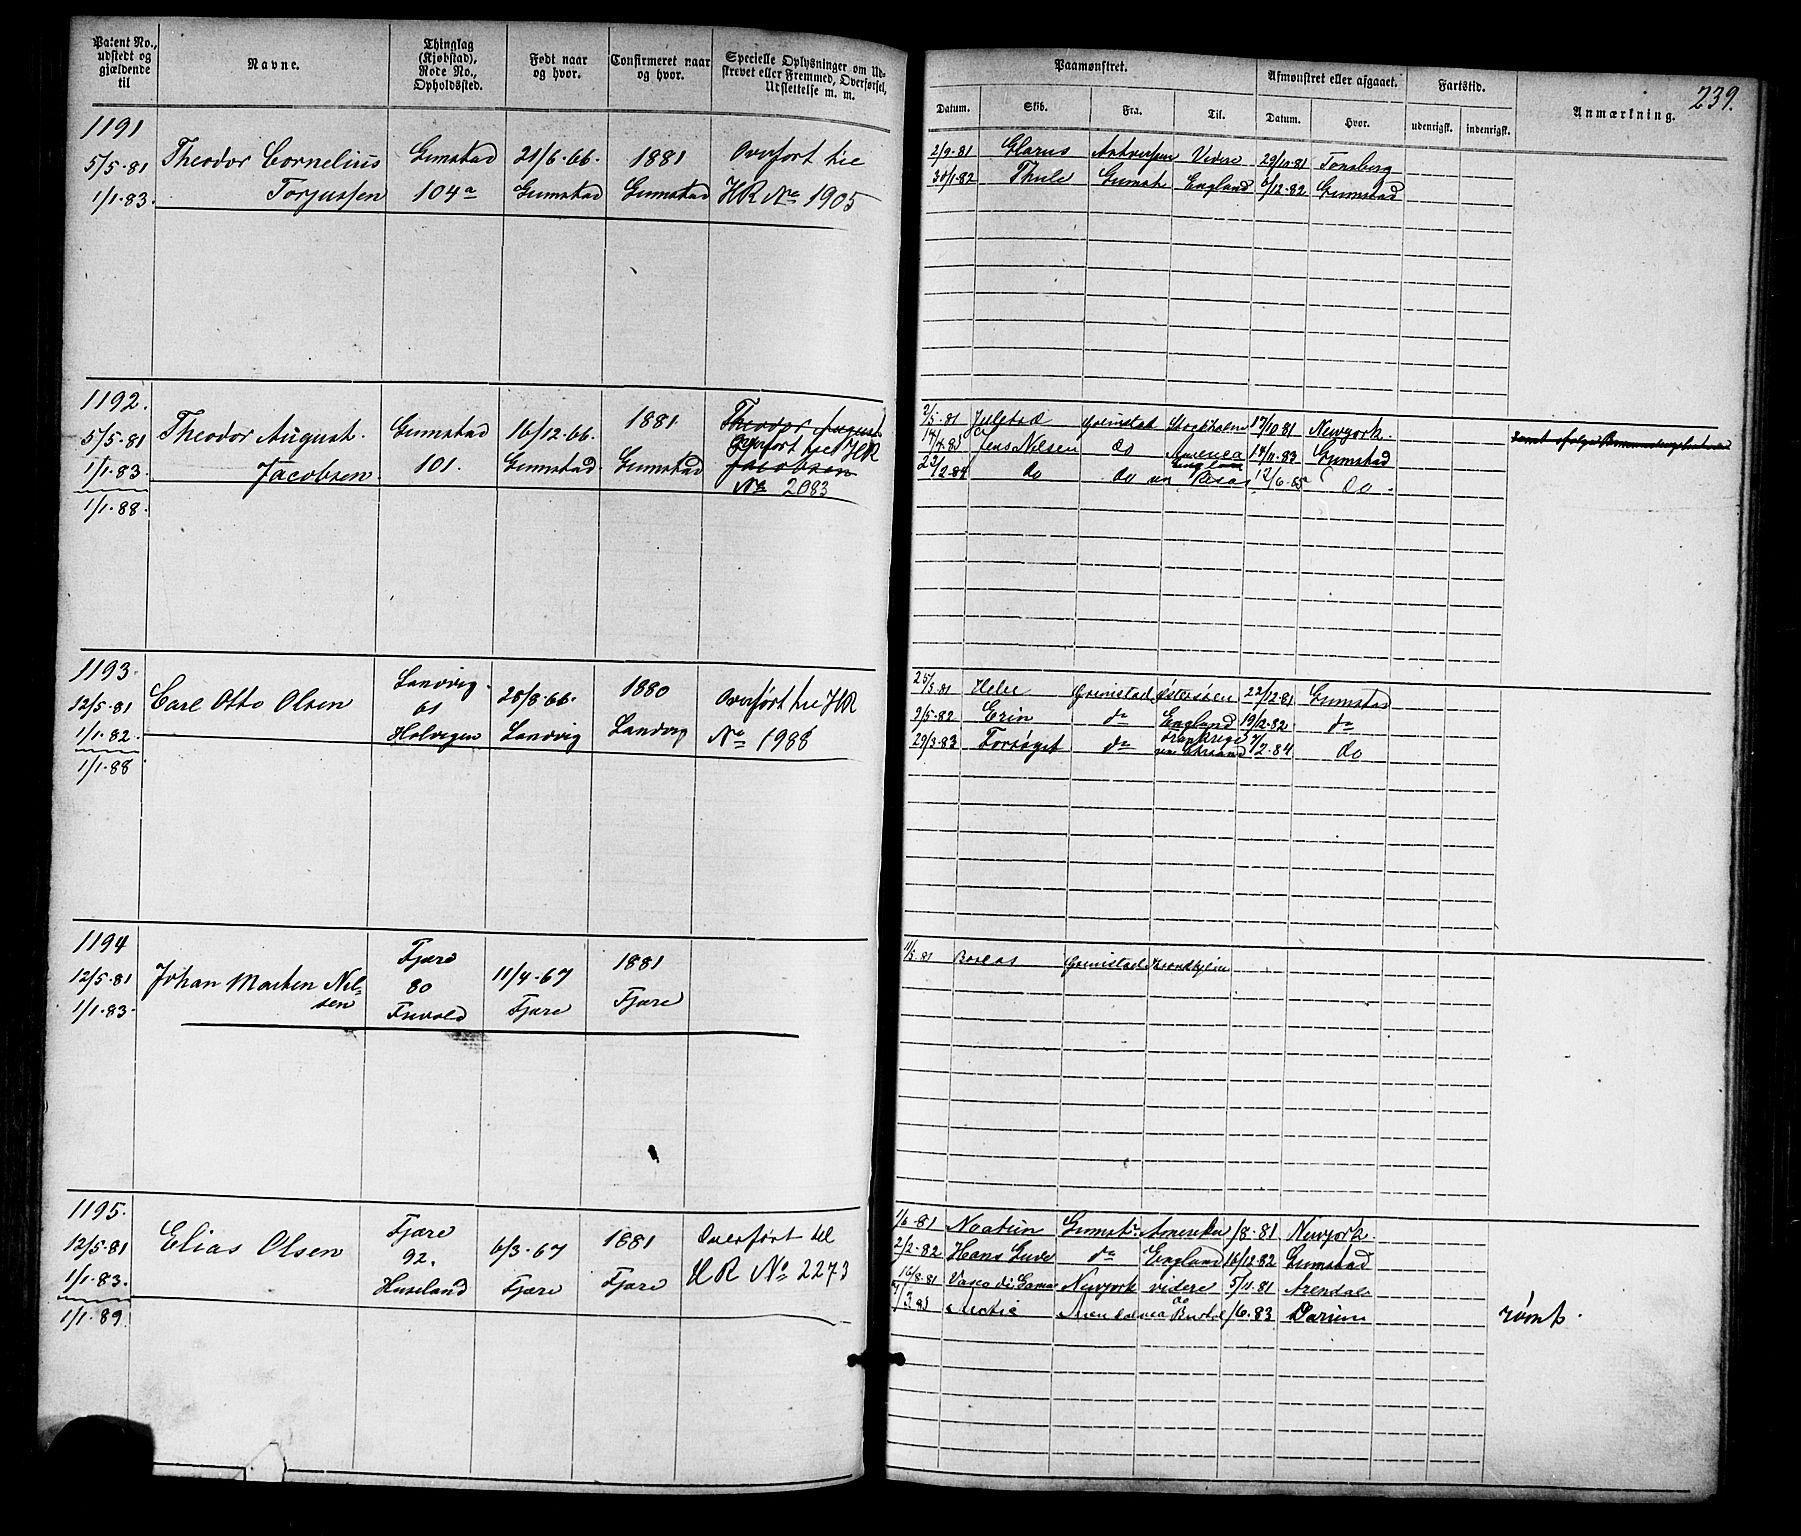 239.
Patent No., udstedt og gjældende til
Navne.
Thinglag (Kjøbstad), Rode No., Opholdssted.
Født naar og hvor.
Confirmeret naar og hvor.
Specielle Oplysninger om Udstrevet eller Fremmed, Overførsel, Udslettelse m. m.
Paamønstret.
Afmønstret eller afgaaet.
Fartstid.
Anmærkning.
Datum. Skib. Fra. Til. Datum. Hvor. udenrigsk. indenrigsk.
1191
5/5·81 Theodor Cornelius Grimstad 21/6·66. 1881 Overført til
1/1·83. Torjussen 104a Grimstad Grimstad HR No 1905
2/9·81 Glarus Antverpen Videre 29/10·81 Tønsberg
30/1·82 Thule Grimst England 6/12·82 Grimstad
1192.
5/5·81 Theodor August Grimstad 16/12·66. 1881 Theodor August
1/1·83. Jacobsen 101. Grimstad Grimstad Overført til HR
Jacobsen
1/1·88. No 2083
2/5·81 Grimstad Stockholm 17/10·81 Newyork.
14/4·83 Jens Nilsen do America 17/11·83 Grimstad
22/2·84 do do England 12/6·85 do
1193.
12/5·81 Carl Otto Olsen Landvig 28/8·66. 1880 Overført til HR
1/1·82. 61 Holvigen Landvig Landvig No 1988
1/1·88
25/5·81 Hebe Grimstad Østersøen 22/12·81 Grimstad
9/5·82 Erin do England 19/2·82 do
29/3·83 Forsøget do Frankrige 7/2·84 do
1194
12/5·81 Johan Marten Nil- Fjære 11/4·67 1881
1/1·83. sen 80 Frivold Fjære Fjære
11/5·81 Boreas Grimstad Trondhjem
1195.
12/5·81 Elias Olsen Fjære 6/3·67 1881 Overført til
1/1·83. 92. Huseland Fjære Fjære HR No 2273
1/1·89
1/6·81 Noatun Grimst. Amerika 1/8·81 Newyork.
2/2·82 Hans Gude do England 16/12·82 Grimstad
16/8·81 Vasco di Gama Newyork videre 5/11·81 Arendal
7/3·83 Arctic Arendal 1/6·83
rømt.